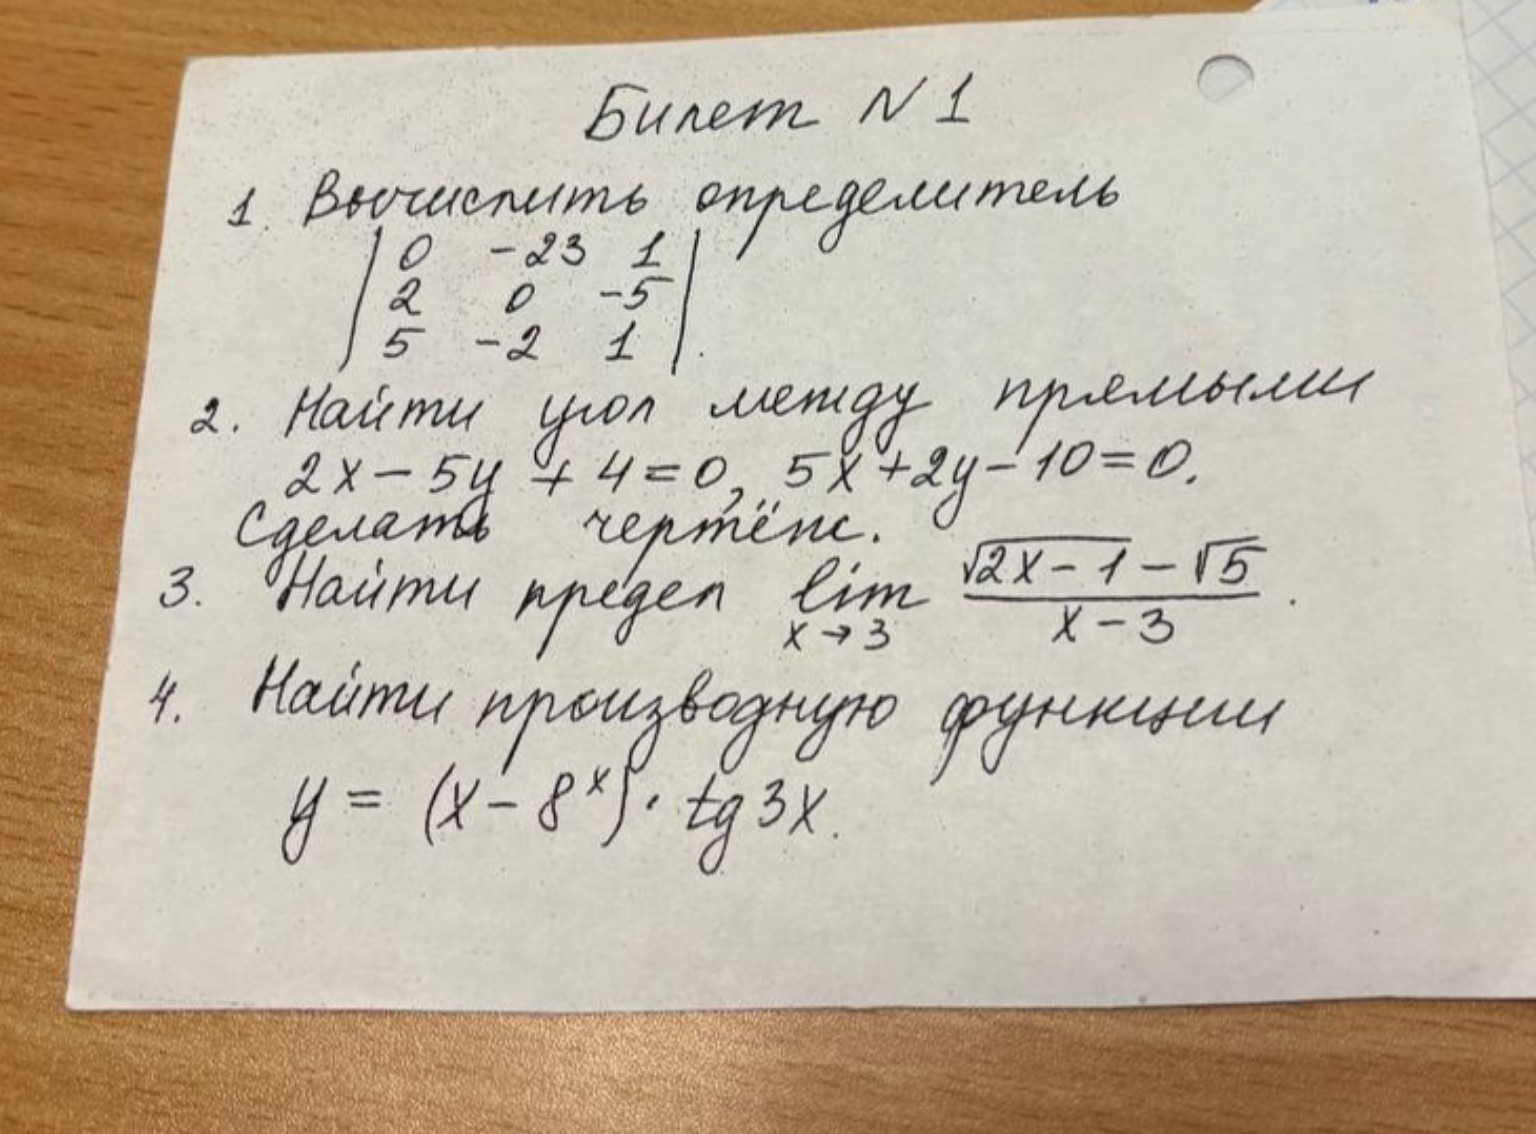 Билет N 1
1. Вычислить определитель
| 0 -23 1 |
| 2 0 -5 |
| 5 -2 1 |.
2. Найти угол между прямыми
2x - 5y + 4 = 0, 5x + 2y - 10 = 0.
Сделать чертёж.
3. Найти предел lim x→3 (√(2x - 1) - √5)/(x - 3).
4. Найти производную функции
y = (x - 8^x) · tg 3x.